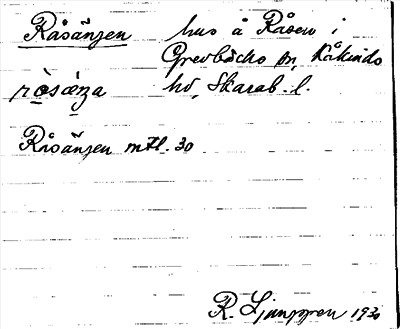 Råsängen hus å Råsen i
Grevbäcks sn, Kåkinds
ròsǽŋa hd, Skarab. l.
Råsängen mtl. 30
R. Ljunggren 1930